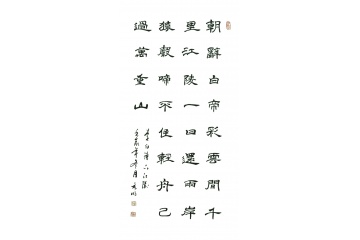 朝辭白帝彩雲間千
里江陵一日還兩岸
猿聲啼不住輕舟已
過萬重山
李白詩下江陵